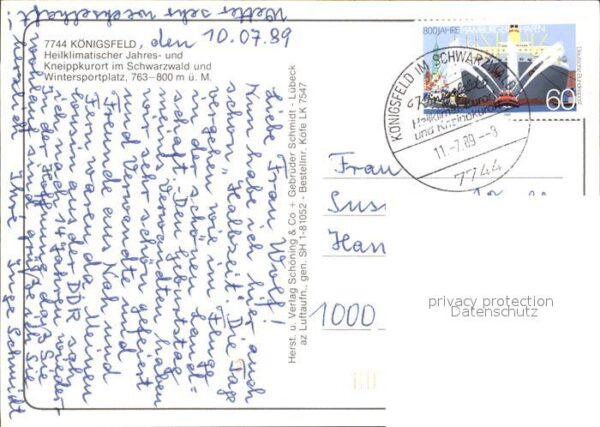 7744 KÖNIGSFELD, den 10.07.89
Heilklimatischer Jahres- und
Kneippkurort im Schwarzwald und
Wintersportplatz, 763–800 m ü. M.
Liebe Frau Wulf!
Nun habe ich hier auch
schon "Halbzeit". Die Tage
vergehen wie im Flug
in der schönen Land-
schaft. Den Geburtstag
meines Verwandten haben
wir sehr schön gefeiert
und Verwandte und
Freunde aus Nah und
Fern waren da. Meinen
Cousin aus der DDR sah
ich nach 14 Jahren wieder.
Ihre Inge Schmidt
Wetter sehr wechselhaft!
Herst. u. Verlag Schöning & Co + Gebrüder Schmidt - Lübeck
az Luftaufn., gen. SH 1-81052 - Bestellnr. Köfe LK 7547
800 JAHRE HAMBURGER HAFEN
Deutsche Bundespost
60
KÖNIGSFELD IM SCHWARZWALD
Königsfeld
Heilklimat. Kurort
und Kneippkurort
11.-7.89 --9
7744
Frau
Sus
Han
1000
privacy protection
Datenschutz